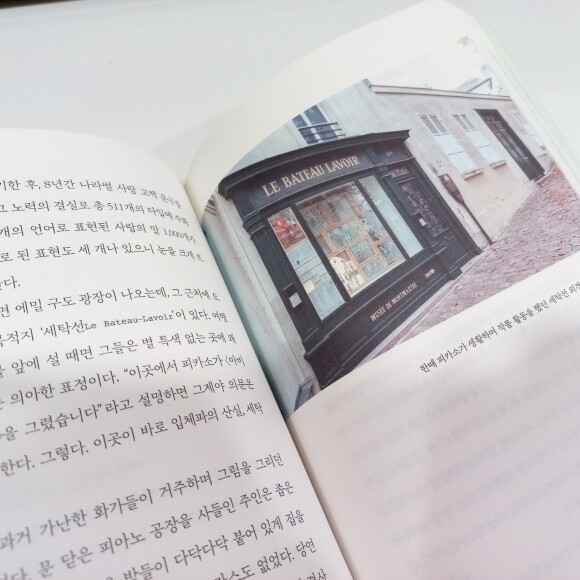 한 후, 8년간 나라별 사랑 고백
노력의 결실로 총 511개의 타일에 수화
개의 언어로 표현된 사랑의 말 1,000개가
로 된 표현도 세 개나 있으니 눈을 크게 뜨
다.
면 에밀 구도 광장이 나오는데, 그 근처에 오
목적지 ‘세탁선Le Bateau-Lavoir’이 있다. 여행
앞에 설 때면 그들은 별 특색 없는 곳에 왜
의아한 표정이다. “이곳에서 피카소가 〈아비
을 그렸습니다”라고 설명하면 그제야 의문은
한다. 그렇다. 이곳이 바로 입체파의 산실, 세탁
과거 가난한 화가들이 거주하며 그림을 그리던
문 닫은 피아노 공장을 사들인 주인은 좁은
방들이 다닥다닥 붙어 있게 집을
없었다. 당연
LE BATEAU LAVOIR
MUSÉE DE MONTMARTRE
한때 피카소가 생활하며 작품 활동을 했던 세탁선 외